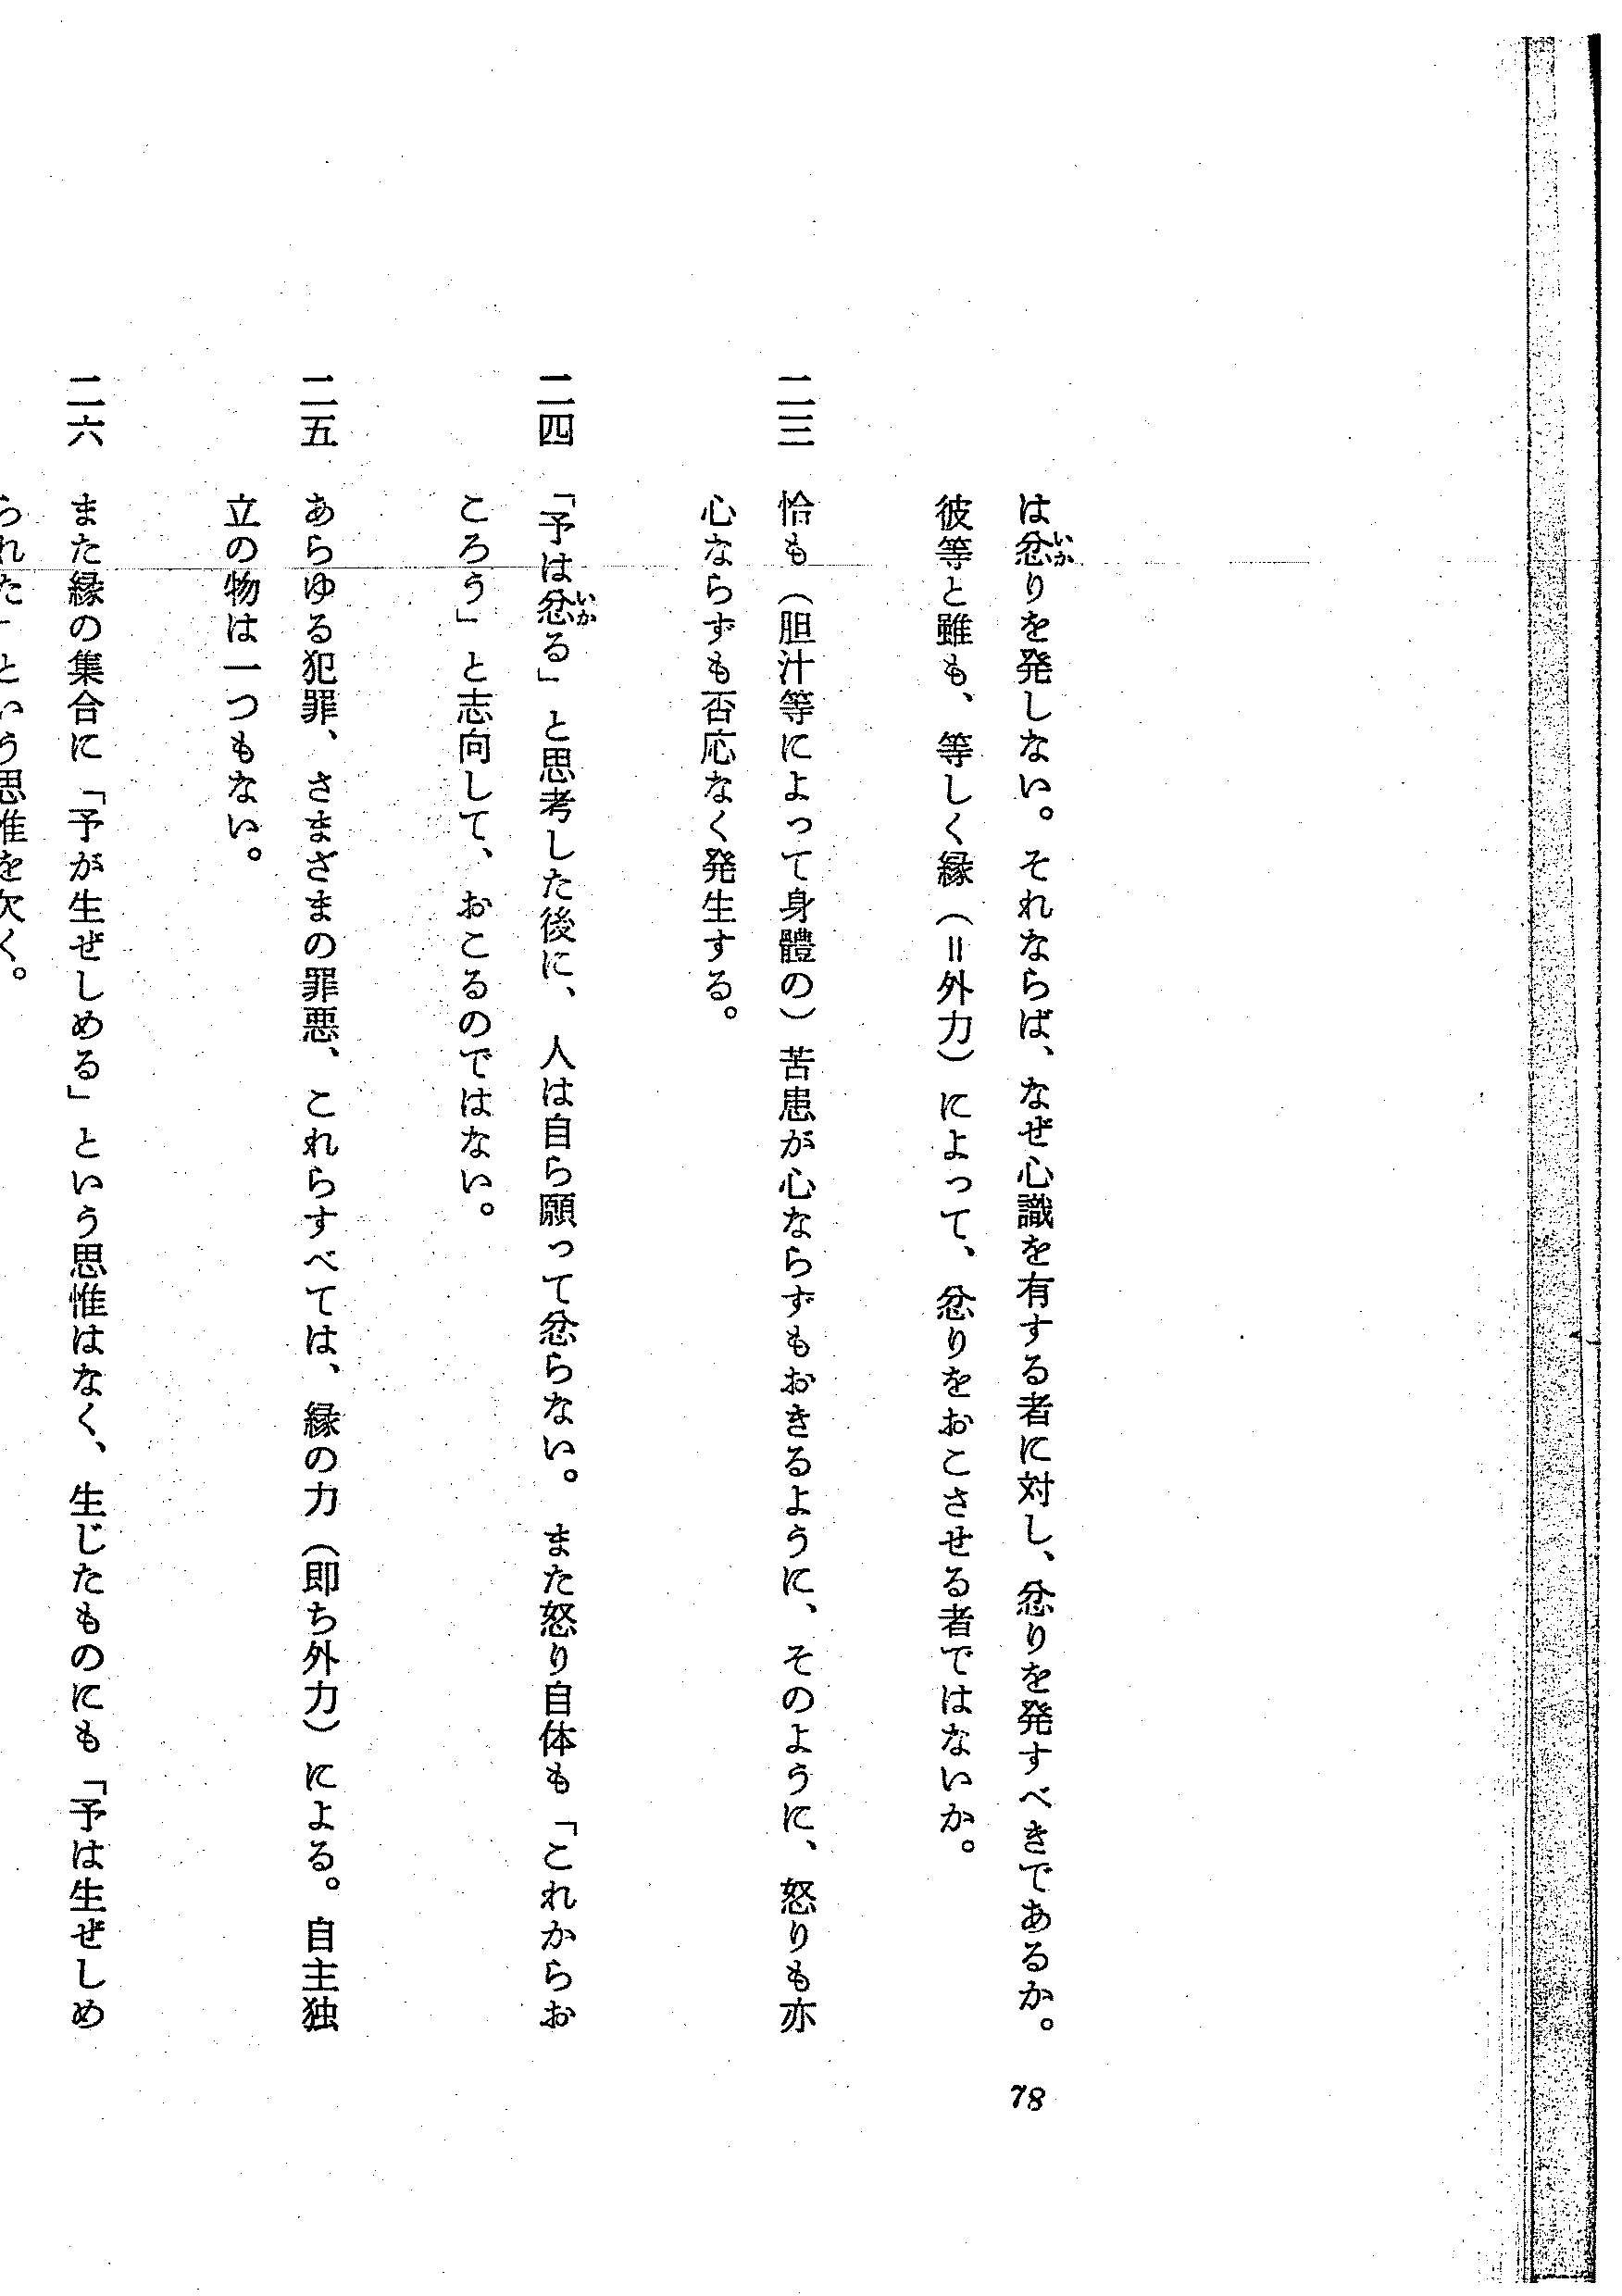 は忿りを発しない。それならば、なぜ心識を有する者に対し、忿りを発すべきであるか。
いか
彼等と雖も、等しく縁（＝外力）によって、忿りをおこさせる者ではないか。
二三　恰も（胆汁等によって身體の）苦患が心ならずもおきるように、そのように、怒りも亦
心ならずも否応なく発生する。
二四　「予は忿る」と思考した後に、人は自ら願って忿らない。また怒り自体も「これからお
いか
ころう」と志向して、おこるのではない。
二五　あらゆる犯罪、さまざまの罪悪、これらすべては、縁の力（即ち外力）による。自主独
立の物は一つもない。
二六　また縁の集合に「予が生ぜしめる」という思惟はなく、生じたものにも「予は生ぜしめ
られた」という思惟を欠く。
78